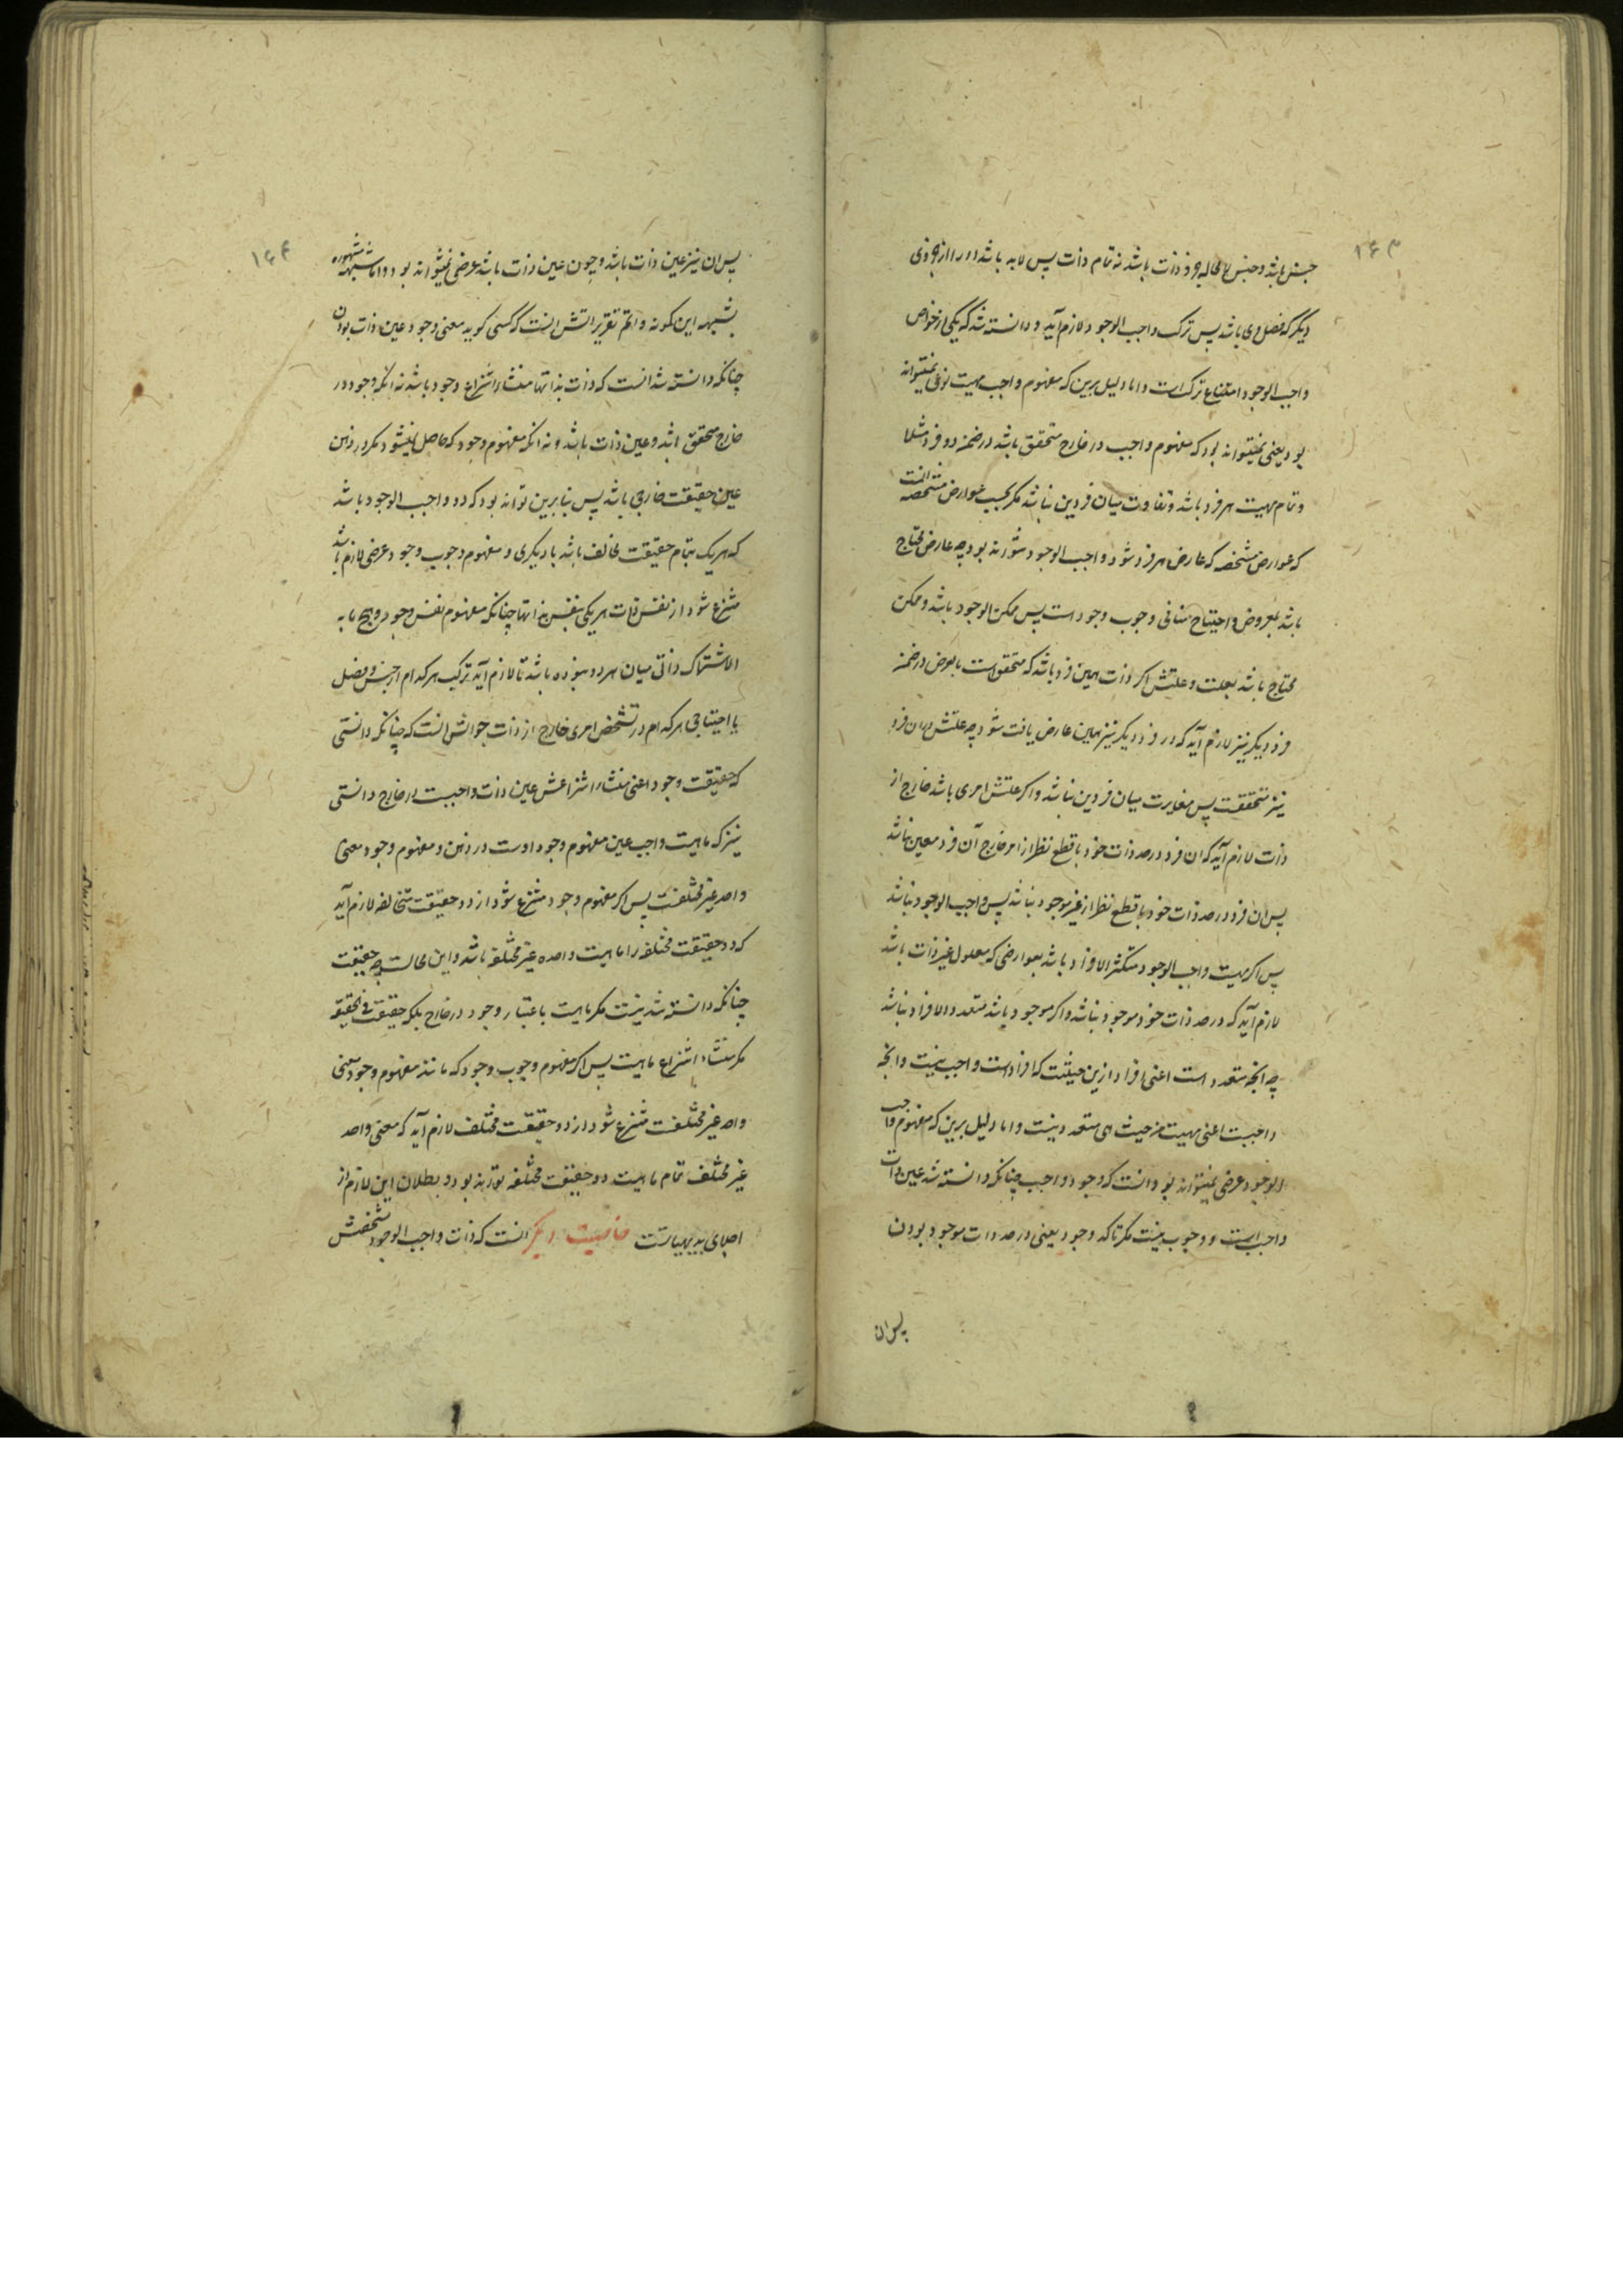 ۱۶۳
جنس باشد و جنس لا محاله جزو ذات باشد نه تمام ذات پس لابد باشد او را از جزوی
دیگر که فصل وی باشد پس ترکب واجب الوجود لازم آید و دانسته شد که یکی از خواص
واجب الوجود امتناع ترکب است و اما دلیل برین که مفهوم واجب مهیت نوعی نمیتواند
بود یعنی نمیتواند بود که مفهوم واجب در خارج متحقق باشد در ضمن دو فرد مثلا
و تمام مهیت هر فرد باشد و تفاوت میان فردین نباشد مگر بحسب عوارض مشخصه انست
که عوارض مشخصه که عارض هر فرد شود واجب الوجود نتواند بود چه عارض محتاج
باشد بمعروض و احتیاج منافی وجوب وجود است پس ممکن الوجود باشد و ممکن
محتاج باشد بعلت و علتش اگر ذات همین فرد باشد که متحقق است بالعرض در ضمن
فرد دیگر نیز لازم آید که در فرد دیگر نیز همین عارض یافت شود چه علتش در ان فرد
نیز متحققست پس مغایرت میان فردین نباشد و اگر علتش امری باشد خارج از
ذات لازم آید که ان فرد در حد ذات خود با قطع نظر از امر خارج آن فرد معین نباشد
پس ان فرد در حد ذات خود با قطع نظر از غیر موجود نباشد پس واجب الوجود نباشد
پس اگر مهیت واجب الوجود متکثر الافراد باشد بعوارضی که معلول غیر ذات باشد
لازم آید که در حد ذات خود موجود نباشد و اگر موجود باشد متعدد الافراد نباشد
چه انچه متعدد است اعنی افراد ازین حیثیت که افراد است واجب نیست و انچه
واجبست اعنی مهیت من حیث هی متعدد نیست و اما دلیل برین که مفهوم واجب
الوجود عرضی نمیتواند بود انست که وجود واجب چنانکه دانسته شد عین ذات
واجب است و وجوب نیست مگر تاکد وجود یعنی در حد ذات موجود بودن
پس ان
۱۶۴
پس ان نیز عین ذات باشد و چون عین ذات باشد عرضی نمیتواند بود و اما شبهه مشهوره
بشبهه ابن کمونه و اتم تقریراتش انست که کسی گوید معنی وجود عین ذات بودن
چنانکه دانسته شد انست که ذات بذاتها منشاء انتزاع وجود باشد نه انکه وجود در
خارج متحقق باشد و عین ذات باشد و نه انکه مفهوم وجود که حاصل نمیشود مگر در ذهن
عین حقیقت خارجی باشد پس بنابرین تواند بود که دو واجب الوجود باشد
که هر یک بتمام حقیقت مخالف باشد با دیگری و مفهوم وجوب وجود عرضی لازم باشد
منتزع شود از نفس ذات هر یکی بنفس ذاتها چنانکه مفهوم نفس وجود و هیچ ما به
الاشتراک ذاتی میان هر دو نبوده باشد تا لازم آید ترکیب هر کدام از جنس و فصل
یا احتیاجی هر کدام در تشخص امری خارج از ذات جوابش انست که چنانکه دانستی
که حقیقت وجود اعنی منشاء انتزاعش عین ذات واجبست در خارج دانستی
نیز که ماهیت واجب عین مفهوم وجود اوست در ذهن و مفهوم وجود معنی
واحد غیر مختلفست پس اگر مفهوم وجود منتزع شود از دو حقیقت متخالفه لازم آید
که دو حقیقت مختلفه را ماهیت واحده غیر مختلفه باشد و این محالست چه حقیقت
چنانکه دانسته شد نیست مگر ماهیت باعتبار وجود در خارج بلکه حقیقت فی الحقیقه
مگر منشاء انتزاع ماهیت پس اگر مفهوم وجوب وجود که مانند مفهوم وجود معنی
واحد غیر مختلفست منتزع شود از دو حقیقت مختلف لازم آید که معنی واحد
غیر مختلف تمام ماهیت دو حقیقت مختلفه تواند بود و بطلان این لازم از
اجلای بدیهیاتست خاصیت دیگر انست که ذات واجب الوجود تشخصش